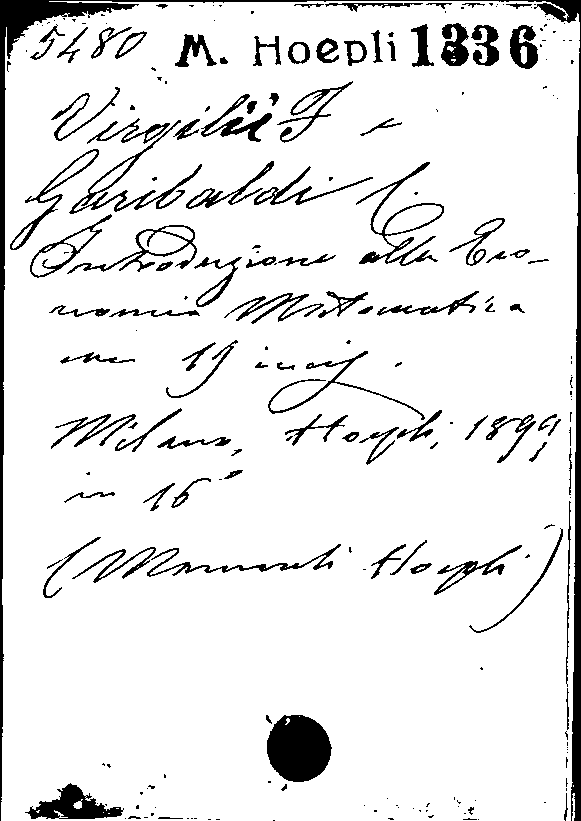 5480 M. Hoepli 1336
Virgilii F -
Garibaldi C.
Introduzione alla Eco-
nomia Matematica
con 19 incis.
Milano, Hoepli, 1899,
in 16°
(Manuali Hoepli)